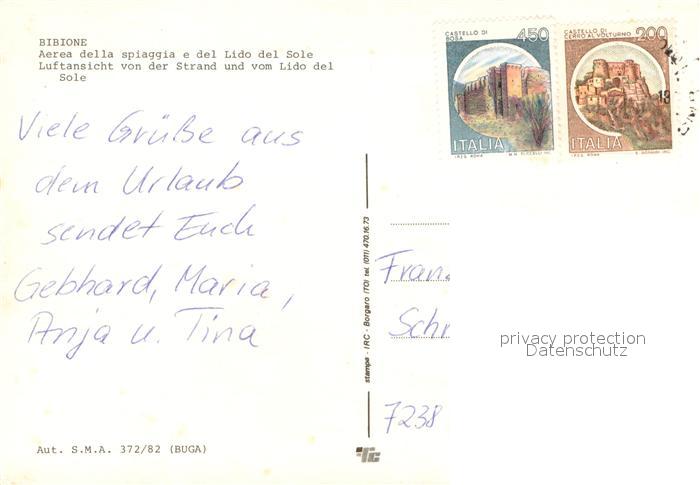 BIBIONE
Aerea della spiaggia e del Lido del Sole
Luftansicht von der Strand und vom Lido del
Sole
CASTELLO DI
BOSA
450
ITALIA
I.P.Z.S. ROMA
CASTELLO DI
CERRO AL VOLTURNO
200
ITALIA
I.P.Z.S. ROMA
13
Viele Grüße aus
dem Urlaub
sendet Euch
Gebhard, Maria,
Anja u. Tina
stampa - IRC - Borgaro (TO) tel. (011) 470.16.73
Fran
Schr
7238
privacy protection
Datenschutz
Aut. S.M.A. 372/82 (BUGA)